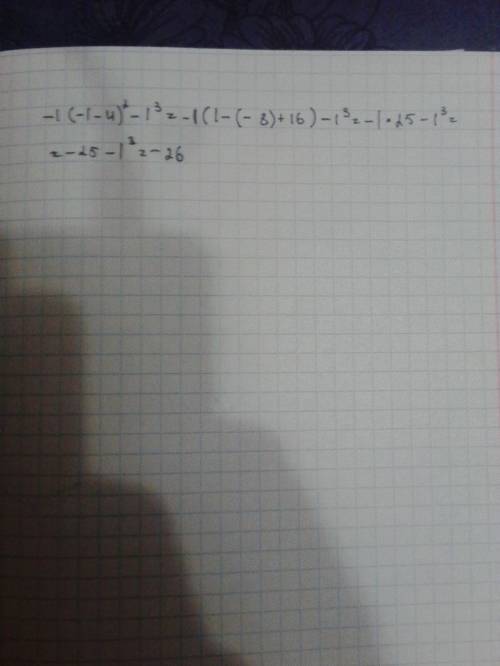 -1(-1-4)² - 1³ = -1(1-(-8)+16) - 1³ = -1 · 25 - 1³ =
= -25 - 1³ = -26